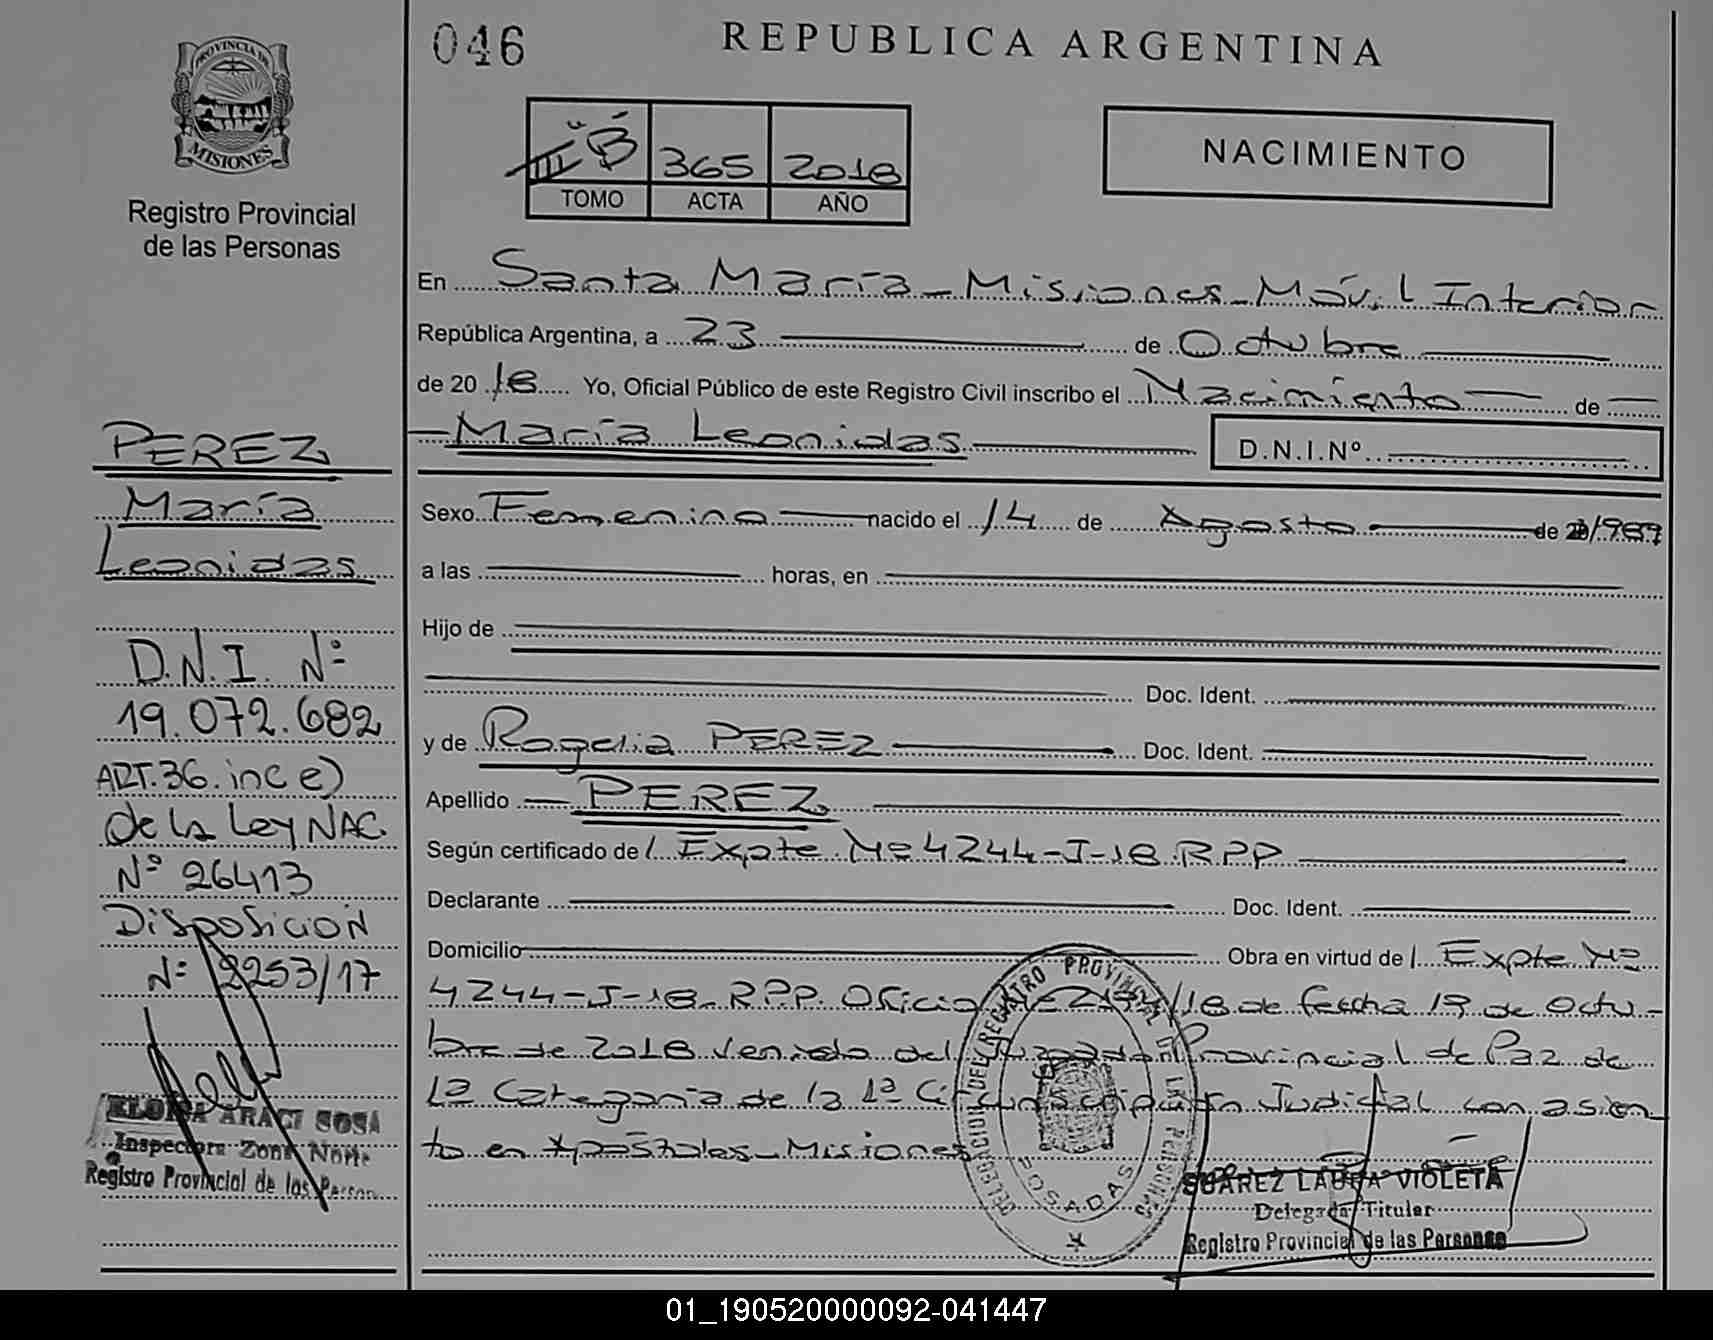 PROVINCIA DE
MISIONES
Registro Provincial
de las Personas
PEREZ
María
Leonidas
D.N.I. Nº
19.072.682
ART.36.inc e)
de la Ley NAC.
Nº 26413
Disposición
Nº 2253/17
ARACI SOSA
Inspectora Zona Norte
Registro Provincial de las Person
046
REPUBLICA ARGENTINA
III "B" 365 2018
TOMO ACTA AÑO
NACIMIENTO
En Santa María - Misiones - Móvil Interior
República Argentina, a 23 de Octubre
de 20 18 Yo, Oficial Público de este Registro Civil inscribo el Nacimiento de
María Leonidas
D.N.I.Nº
Sexo Femenino nacido el 14 de Agosto de 1987
a las horas, en
Hijo de
Doc. Ident.
y de Rogelia PEREZ Doc. Ident.
Apellido PEREZ
Según certificado de Expte Nº 4244-J-18 RPP
Declarante Doc. Ident.
Domicilio Obra en virtud de Expte Nº
4244-J-18-RPP. Oficio /18 de fecha 19 de Octu-
bre de 2018 venido del Juzgado Provincial de Paz de
1ª Categoría de la 1ª Circunscripción Judicial con asien
to en Apóstoles - Misiones
DELEGACION DEL REGISTRO PROVINCIAL DE LAS PERSONAS
POSADAS
SUAREZ LAURA VIOLETA
Delegada Titular
Registro Provincial de las Personas
01_190520000092-041447